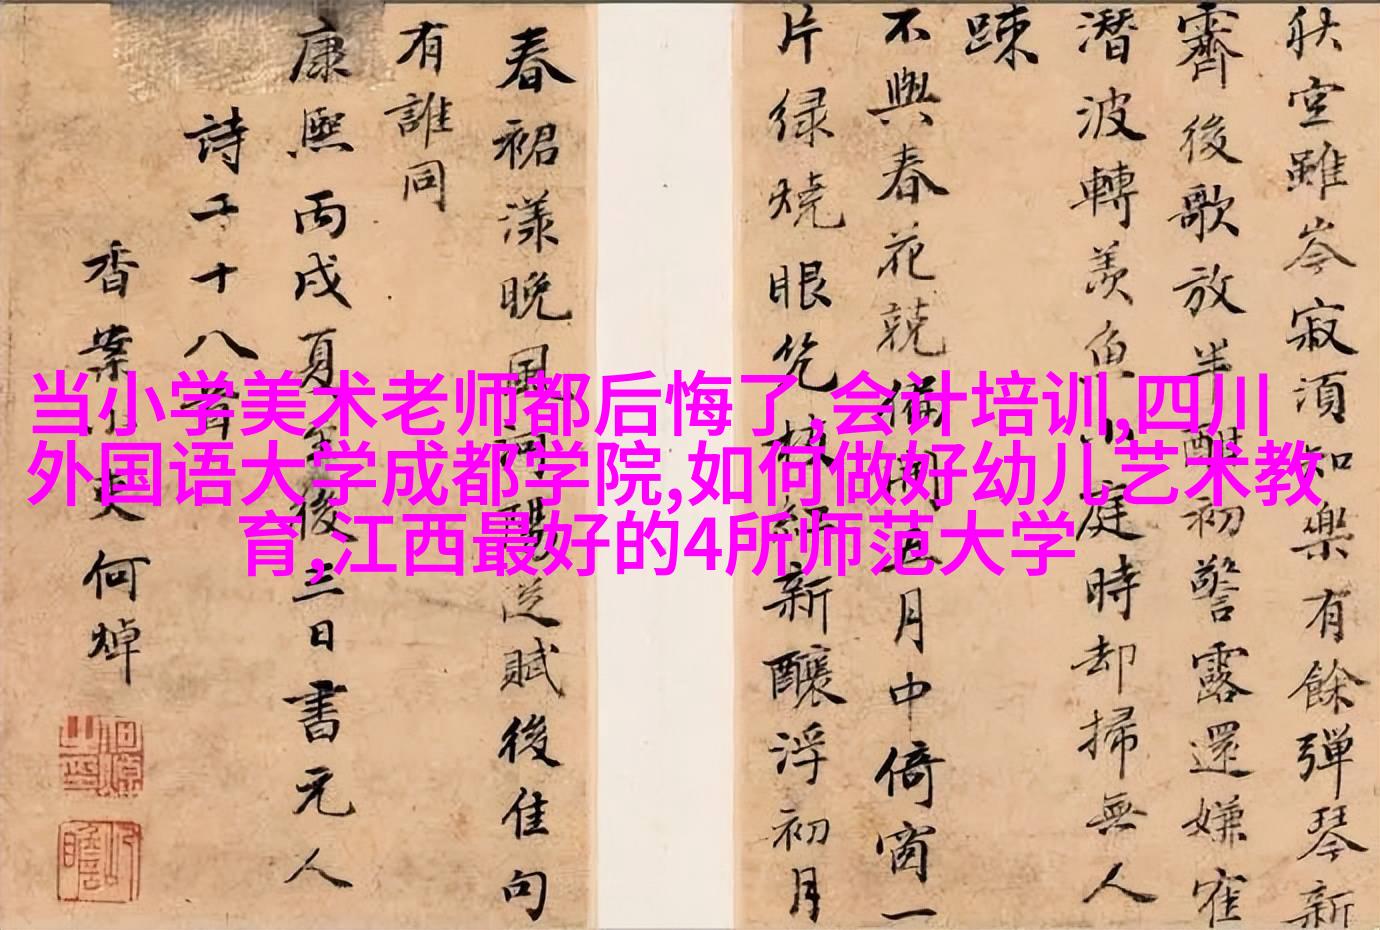 秋空雖岑寂須知樂有餘彈琴新
霽後歌放半酣初警露還嫌
潛波轉羨魚小庭時却掃無人
踈
不與春花競偏開五月中倚窗一
片緑燒眼 新釀浮初月
春裙漾晚風 賦後佳句
有誰同
康熙丙戌夏至後三日書元人
詩二十八首
香案小吏何焯
当小学美术老师都后悔了,会计培训,四川
外国语大学成都学院,如何做好幼儿艺术教
育,江西最好的4所师范大学